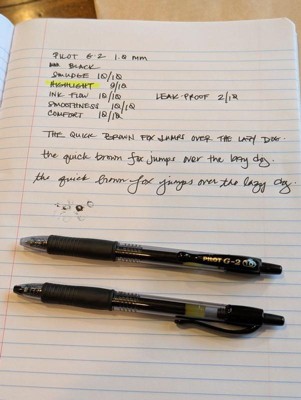 PILOT G-2 1.0 mm
BLACK
SMUDGE 10/10
HIGHLIGHT 9/10
INK FLOW 10/10 LEAK PROOF 2/10
SMOOTHNESS 10/10
COMFORT 10/10
THE QUICK BROWN FOX JUMPS OVER THE LAZY DOG.
the quick brown fox jumps over the lazy dog.
the quick brown fox jumps over the lazy dog.
PILOT G-2 10